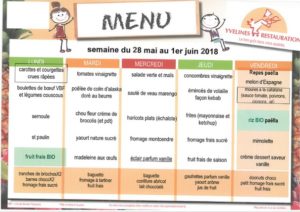 MENU
YVELINES RESTAURATION
semaine du 28 mai au 1er juin 2018
LUNDI
MARDI
MERCREDI
JEUDI
VENDREDI
carottes et courgettes
crues râpées
tomates vinaigrette
salade verte et maïs
concombres vinaigrette
Repas paëlla
melon
boulettes de bœuf VBF
et légumes couscous
poêlée de colin d'alaska
doré au beurre
sauté de veau marengo
émincés de volaille
façon kebab
semoule
chou fleur crème de
brocolis (et pdt)
haricots plats (échalote)
frites (mayonnaise et
ketchup)
riz BIO paëlla
et paulin
yaourt nature sucré
fromage montcendre
fromage fraidou
mimolette
fruit frais BIO
madeleine aux œufs
éclair parfum vanille
fruit de saison
crème dessert saveur
vanille
tranches de briochaX2
barres chocoX2
fromage frais sucré
baguette
fromage à tartiner
fruit frais
baguette
confiture abricot
lait chocolaté
gaufrette parfum vanille
yaourt arôme
jus de fruit